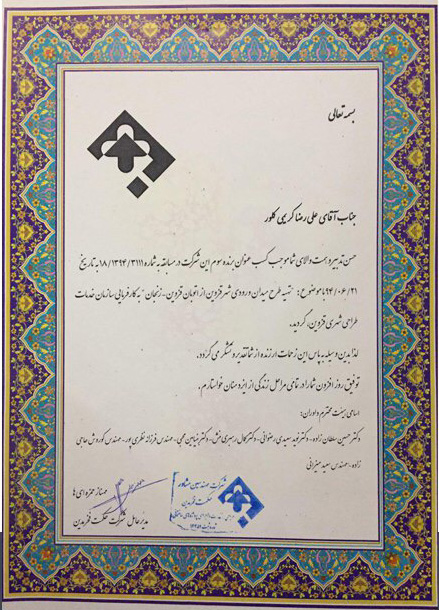 بسمه تعالی
جناب آقای علی رضا کریمی کلور
حسن تدبیر و همت والای شما موجب کسب عنوان برنده سوم این شرکت در مسابقه به شماره ۱۸/۱۳۹۴/۳۱۱۱ به تاریخ
۹۴/۰۶/۲۱ با موضوع: "تهیه طرح میدان ورودی شهر قزوین از اتوبان قزوین-زنجان" به کارفرمایی سازمان خدمات
طراحی شهری قزوین، گردید.
لذا بدین وسیله به پاس این زحمات ارزنده از شما تقدیر و تشکر می گردد.
توفیق روز افزون شما را در تمامی مراحل زندگی از ایزد منان خواستارم.
اسامی هیئت محترم داوران:
دکتر حسین سلطان زاده-دکتر نوید سعیدی رضوانی-دکتر کمال رهبری منش-دکتر بنیامین محبی-مهندس فرزانه نظری پور-مهندس کوروش حاجی
زاده-مهندس سعید میزانی
شرکت مهندسین مشاور
حکمت فرزین
مهناز حمزه ای ها
مدیرعامل شرکت حکمت فرزین